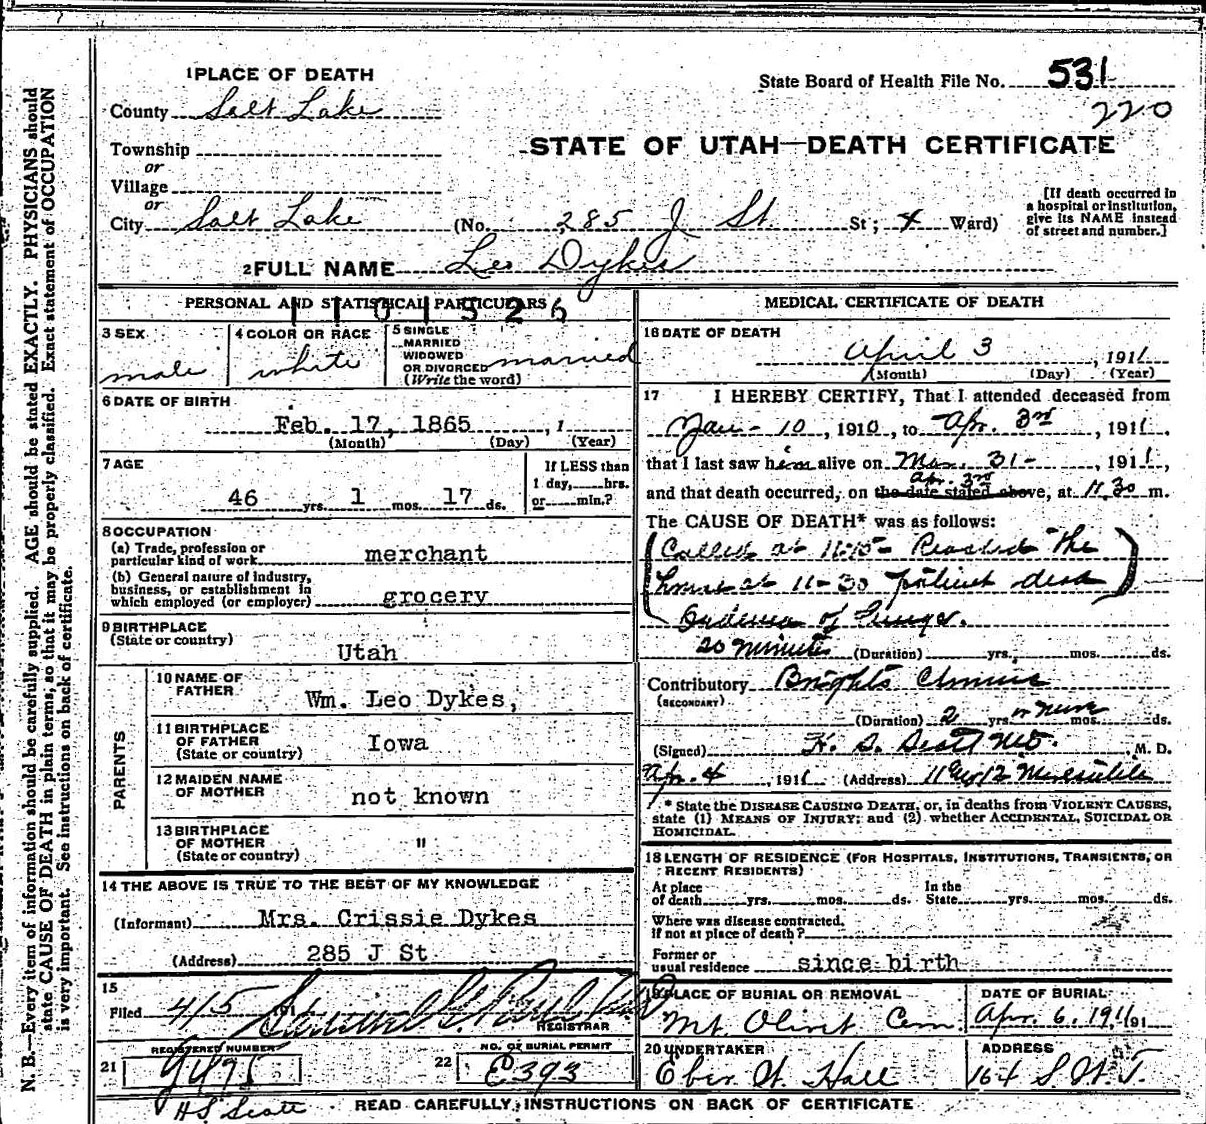 1 PLACE OF DEATH
State Board of Health File No. 531
County Salt Lake
220
STATE OF UTAH—DEATH CERTIFICATE
Township
or
Village
or
City Salt Lake (No. 285 J St. St; 4 Ward)
[If death occurred in a hospital or institution, give its NAME instead of street and number.]
2 FULL NAME Leo Dykes
PERSONAL AND STATISTICAL PARTICULARS
1101526
3 SEX
male
4 COLOR OR RACE
white
5 SINGLE
MARRIED
WIDOWED
OR DIVORCED married
(Write the word)
6 DATE OF BIRTH
Feb. 17, 1865, 1
(Month) (Day) (Year)
7 AGE
46 yrs. 1 mos. 17 ds.
If LESS than
1 day, hrs.
or min.?
8 OCCUPATION
(a) Trade, profession or
particular kind of work merchant
(b) General nature of industry,
business, or establishment in
which employed (or employer) grocery
9 BIRTHPLACE
(State or country)
Utah
PARENTS
10 NAME OF
FATHER
Wm. Leo Dykes,
11 BIRTHPLACE
OF FATHER
(State or country)
Iowa
12 MAIDEN NAME
OF MOTHER
not known
13 BIRTHPLACE
OF MOTHER
(State or country)
"
14 THE ABOVE IS TRUE TO THE BEST OF MY KNOWLEDGE
(Informant) Mrs. Crissie Dykes
(Address) 285 J St
15
Filed 4/5 191
REGISTRAR
REGISTERED NUMBER
21 G495
NO. OF BURIAL PERMIT
22 C393
MEDICAL CERTIFICATE OF DEATH
16 DATE OF DEATH
April 3, 1911
(Month) (Day) (Year)
17 I HEREBY CERTIFY, That I attended deceased from
Jan - 10, 1910, to Apr. 3rd, 1911,
that I last saw him alive on Mar. 31-, 1911,
Apr. 3rd
and that death occurred, on the date stated above, at 11.30 m.
The CAUSE OF DEATH* was as follows:
(Called at 11:15- Reached the
home at 11-30 patient dead)
Oedema of Lungs.
20 minutes (Duration) yrs. mos. ds.
Contributory Brights Chronic
(SECONDARY)
(Duration) 2 yrs or more mos. ds.
(Signed) H. S. Scott MD. M. D.
Apr. 4, 1911 (Address) Mercantile
* State the DISEASE CAUSING DEATH, or, in deaths from VIOLENT CAUSES,
state (1) MEANS OF INJURY; and (2) whether ACCIDENTAL, SUICIDAL OR
HOMICIDAL.
18 LENGTH OF RESIDENCE (FOR HOSPITALS, INSTITUTIONS, TRANSIENTS, OR
RECENT RESIDENTS)
At place
of death yrs. mos. ds.
In the
State yrs. mos. ds.
Where was disease contracted,
If not at place of death?
Former or
usual residence since birth
19 PLACE OF BURIAL OR REMOVAL
Mt Olivet Cem.
DATE OF BURIAL
Apr. 6, 1911 191
20 UNDERTAKER
Eber W. Hall
ADDRESS
164 S. W. T.
H S Scott
READ CAREFULLY, INSTRUCTIONS ON BACK OF CERTIFICATE
N. B.—Every item of information should be carefully supplied. AGE should be stated EXACTLY. PHYSICIANS should
state CAUSE OF DEATH in plain terms, so that it may be properly classified. Exact statement of OCCUPATION
is very important. See instructions on back of certificate.